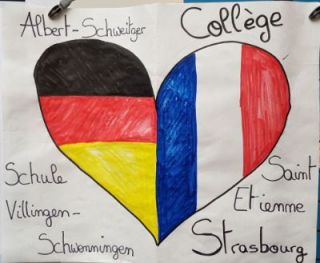 Albert-Schweitzer
Schule
Villingen-
Schwenningen
Collège
Saint
Etienne
Strasbourg